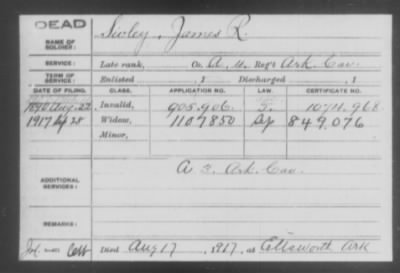 DEAD
NAME OF SOLDIER: Sivley, James R.
SERVICE: Late rank, Co. A, 4, Reg't Ark. Cav.
TERM OF SERVICE: Enlisted , 1 Discharged , 1
DATE OF FILING. CLASS. APPLICATION NO. LAW. CERTIFICATE NO.
1890 Aug. 22 Invalid, 905.906 1074.968
1917 28 Widow, 1107850 849,076
Minor,
ADDITIONAL SERVICES: A 3. Ark. Cav.
REMARKS:
Died Aug 17, 1917, at Ellsworth Ark